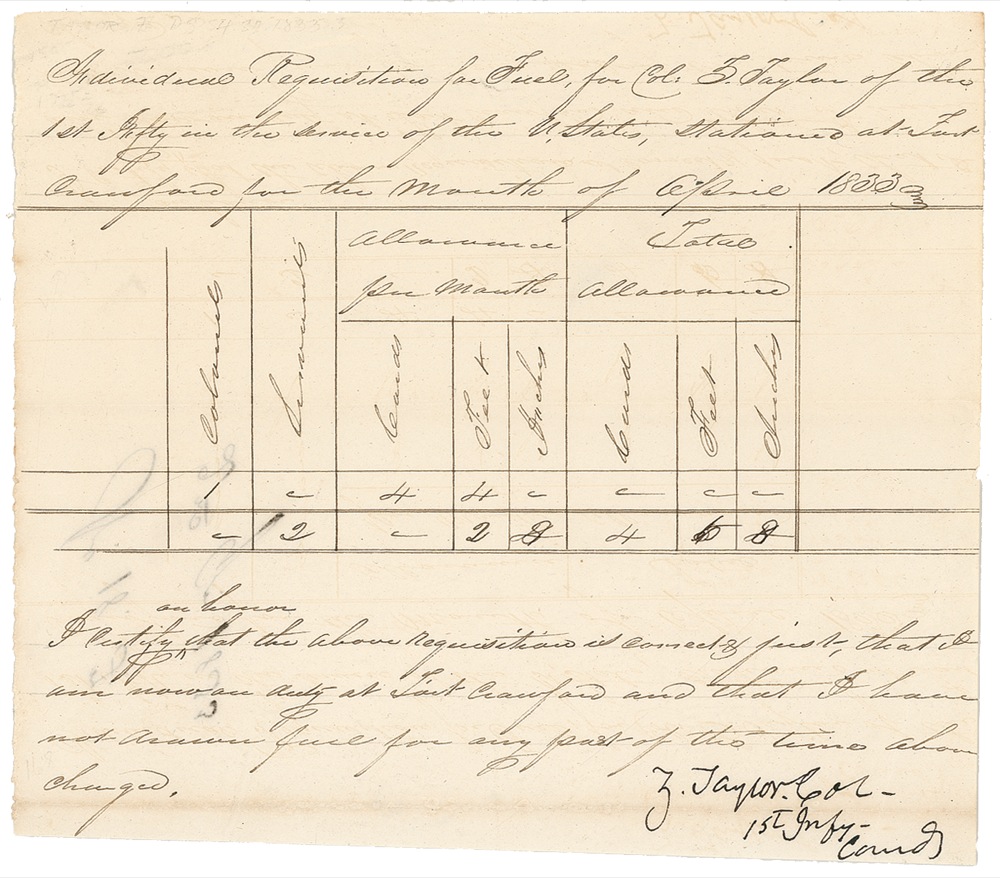 Individual Requisition for Fuel, for Col: Z. Taylor of the
1st Infty in the service of the U. States, stationed at Fort
Crawford for the Month of April 1833
Allowance Total
per Month Allowance
Colonels Servants Cords Feet Inches Cords Feet Inches
1 " 4 4 " " " "
" 2 " 2 8 4 6 8
on honor
I certify that the above requisition is correct & just, that I
am now on duty at Fort Crawford and that I have
not drawn fuel for any part of the time above
charged.
Z. Taylor. Col -
1st Infy -
Comd